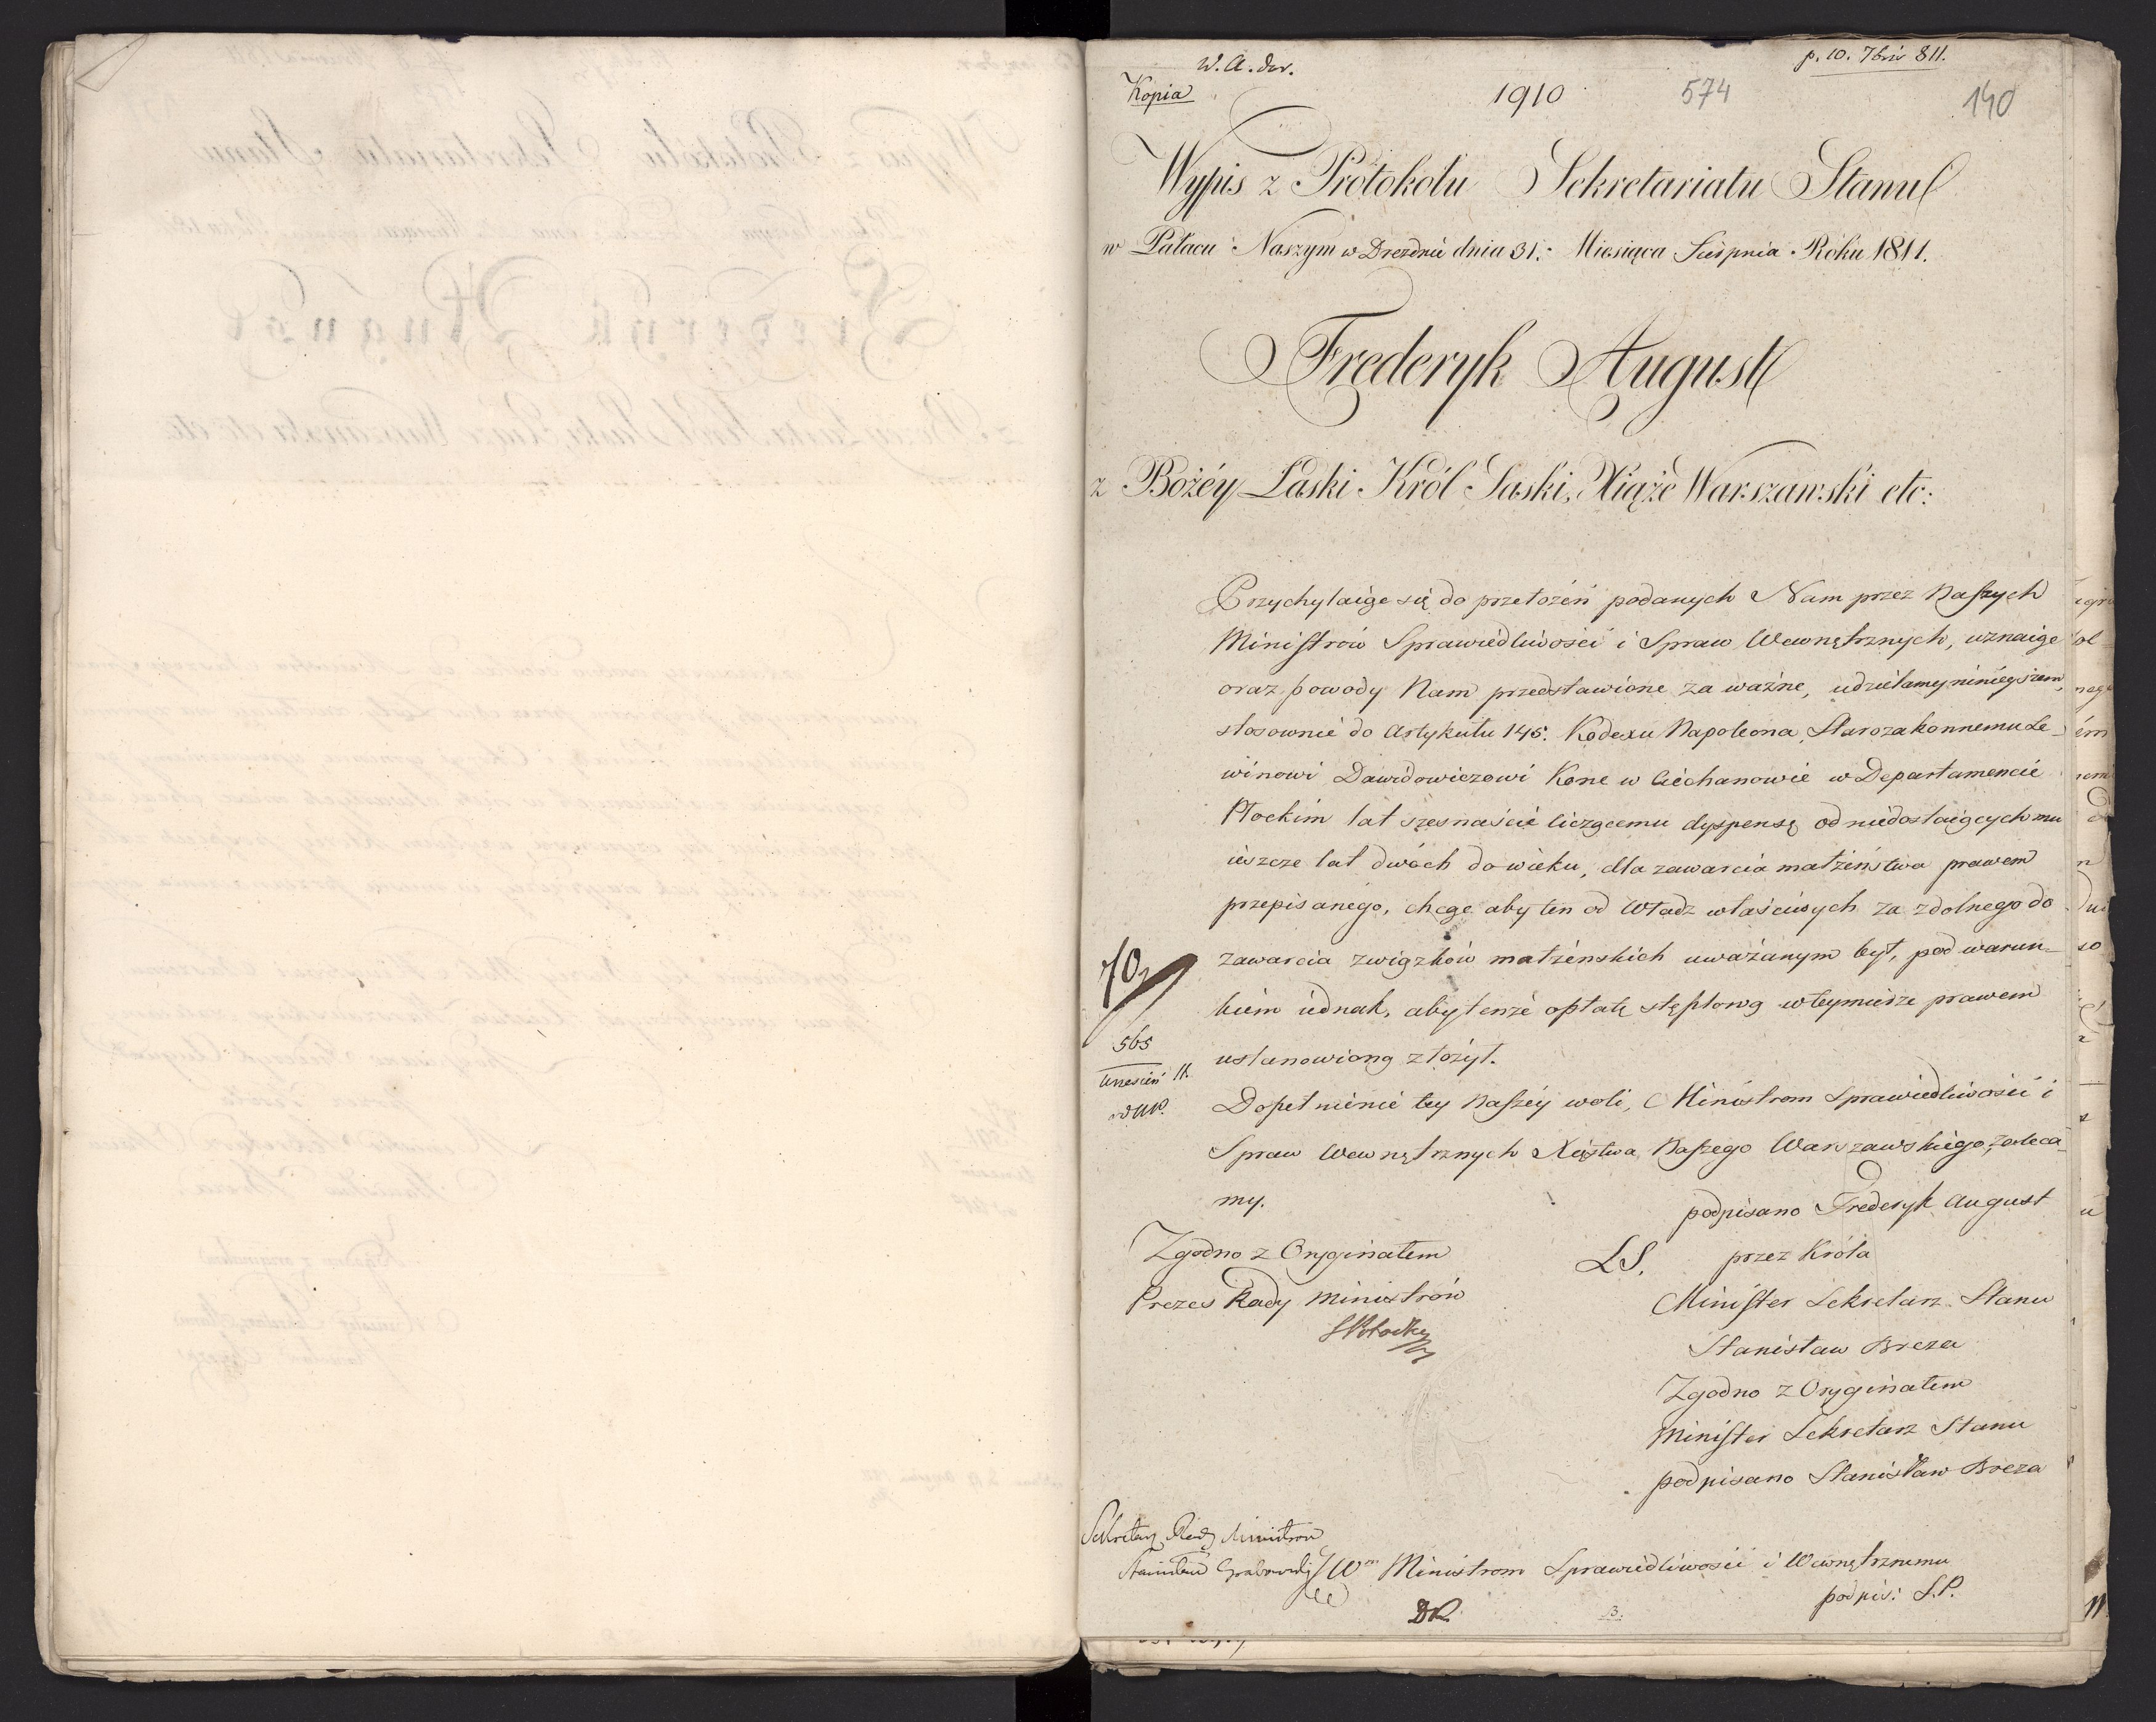 W. A. dur.
p. 10. 7bris 811.
Kopia
1910
574
140
Wypis z Protokołu Sekretariatu Stanu
w Pałacu Naszym w Dreźnie dnia 31. Miesiąca Sierpnia Roku 1811.
Frederyk August
z Bożéy Łaski Król Saski, Xiąże Warszawski etc:
Przychylaiąc się do przełożeń podanych Nam przez Naszych
Ministrów Sprawiedliwości i Spraw Wewnętrznych, uznaiąc
oraz powody Nam przedstawione za ważne, udzielamy ninieyszem,
stosownie do Artykułu 145. Kodexu Napoleona, Starozakonnemu Le-
winowi Dawidowiczowi Kone w Ciechanowie w Departamencie
Płockim lat szesnaście liczącemu dyspensę od niedostaiących mu
ieszcze lat dwóch do wieku, dla zawarcia małżeństwa prawem
przepisanego, chcąc aby ten od Władz właściwych za zdolnego do
zawarcia związków małżeńskich uważanym był, pod warun-
kiem iednak, aby tenże opłatę stęplową w teymierze prawem
ustanowioną złożył.
70
565
Wrzesień 11.
Dopełnienie tey Naszéy woli, Ministrom Sprawiedliwości i
Spraw Wewnętrznych Xięstwa Naszego Warszawskiego, zaleca-
my.
podpisano Frederyk August
Zgodno z Oryginałem
LS. przez Króla
Prezes Rady Ministrów
Minister Sekretarz Stanu
SPotocki
Stanisław Breza
Zgodno z Oryginałem
Minister Sekretarz Stanu
podpisano Stanisław Breza
Sekretarz Rady Ministrów
Stanisław Grabowski
JW Ministrom Sprawiedliwości i Wewnętrznemu
podpis: S.P.
DR
B.